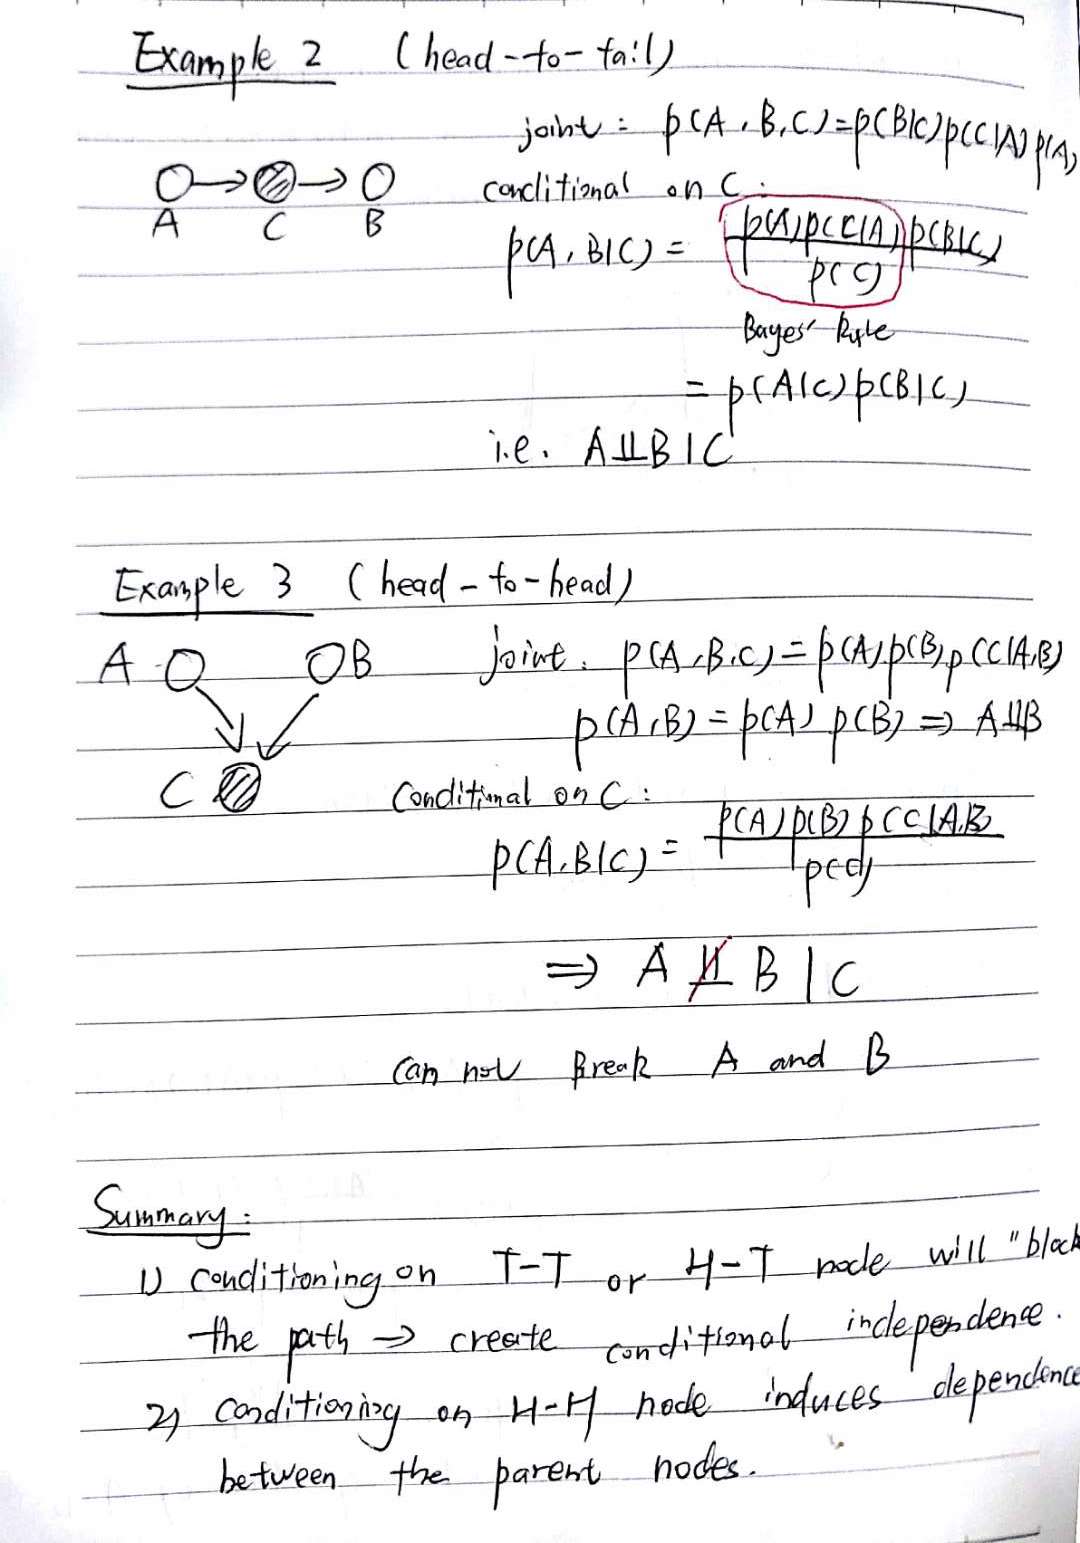 Example 2 (head-to-tail)
joint: p(A,B,C)=p(B|C)p(C|A)p(A)
A C B
conditional on C:
p(A,B|C) = p(A)p(C|A)p(B|C) / p(C)
Bayes' Rule
= p(A|C)p(B|C)
i.e. A⫫B|C
Example 3 (head-to-head)
A B
joint: p(A,B,C)=p(A)p(B)p(C|A,B)
p(A,B)=p(A)p(B) ⇒ A⫫B
C
Conditional on C:
p(A,B|C) = p(A)p(B)p(C|A,B) / p(C)
⇒ A ⫫̸ B | C
Can not Break A and B
Summary:
1) conditioning on T-T or H-T node will "block
the path → create conditional independence.
2) conditioning on H-H node induces dependence
between the parent nodes.